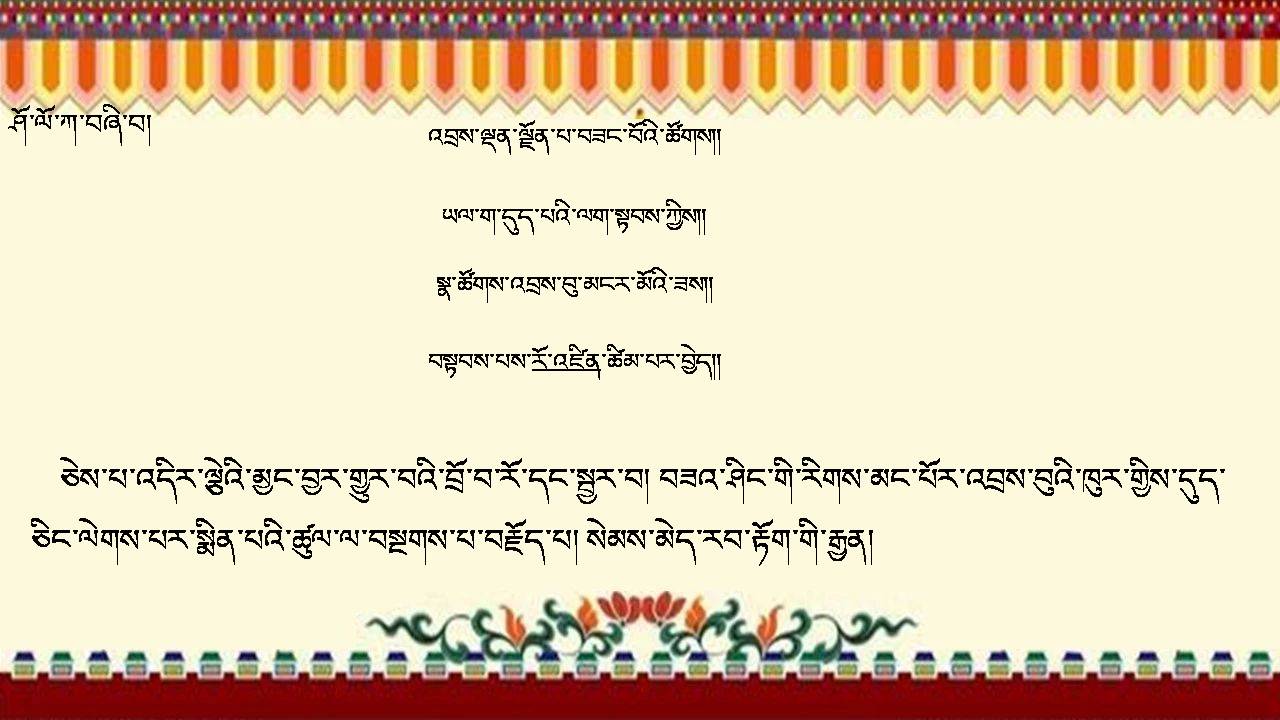 ཤློ་ལོ་ཀ་བཞི་བ།
འབྲས་ལྡན་ལྗོན་པ་བཟང་བོའི་ཚོགས༎
ཡལ་ག་དུད་པའི་ལག་སྟབས་ཀྱིས༎
སྣ་ཚོགས་འབྲས་བུ་མངར་མོའི་ཟས༎
བསྟབས་པས་རོ་འཛིན་ཚིམ་པར་བྱེད༎
ཅེས་པ་འདིར་ལྕེའི་མྱང་བྱར་གྱུར་བའི་བྲོ་བ་རོ་དང་སྦྱར་བ། བཟའ་ཤིང་གི་རིགས་མང་པོར་འབྲས་བུའི་ཁུར་གྱིས་དུད་
ཅིང་ལེགས་པར་སྨིན་པའི་ཚུལ་ལ་བསྔགས་པ་བརྗོད་པ། སེམས་མེད་རབ་རྟོག་གི་རྒྱན།